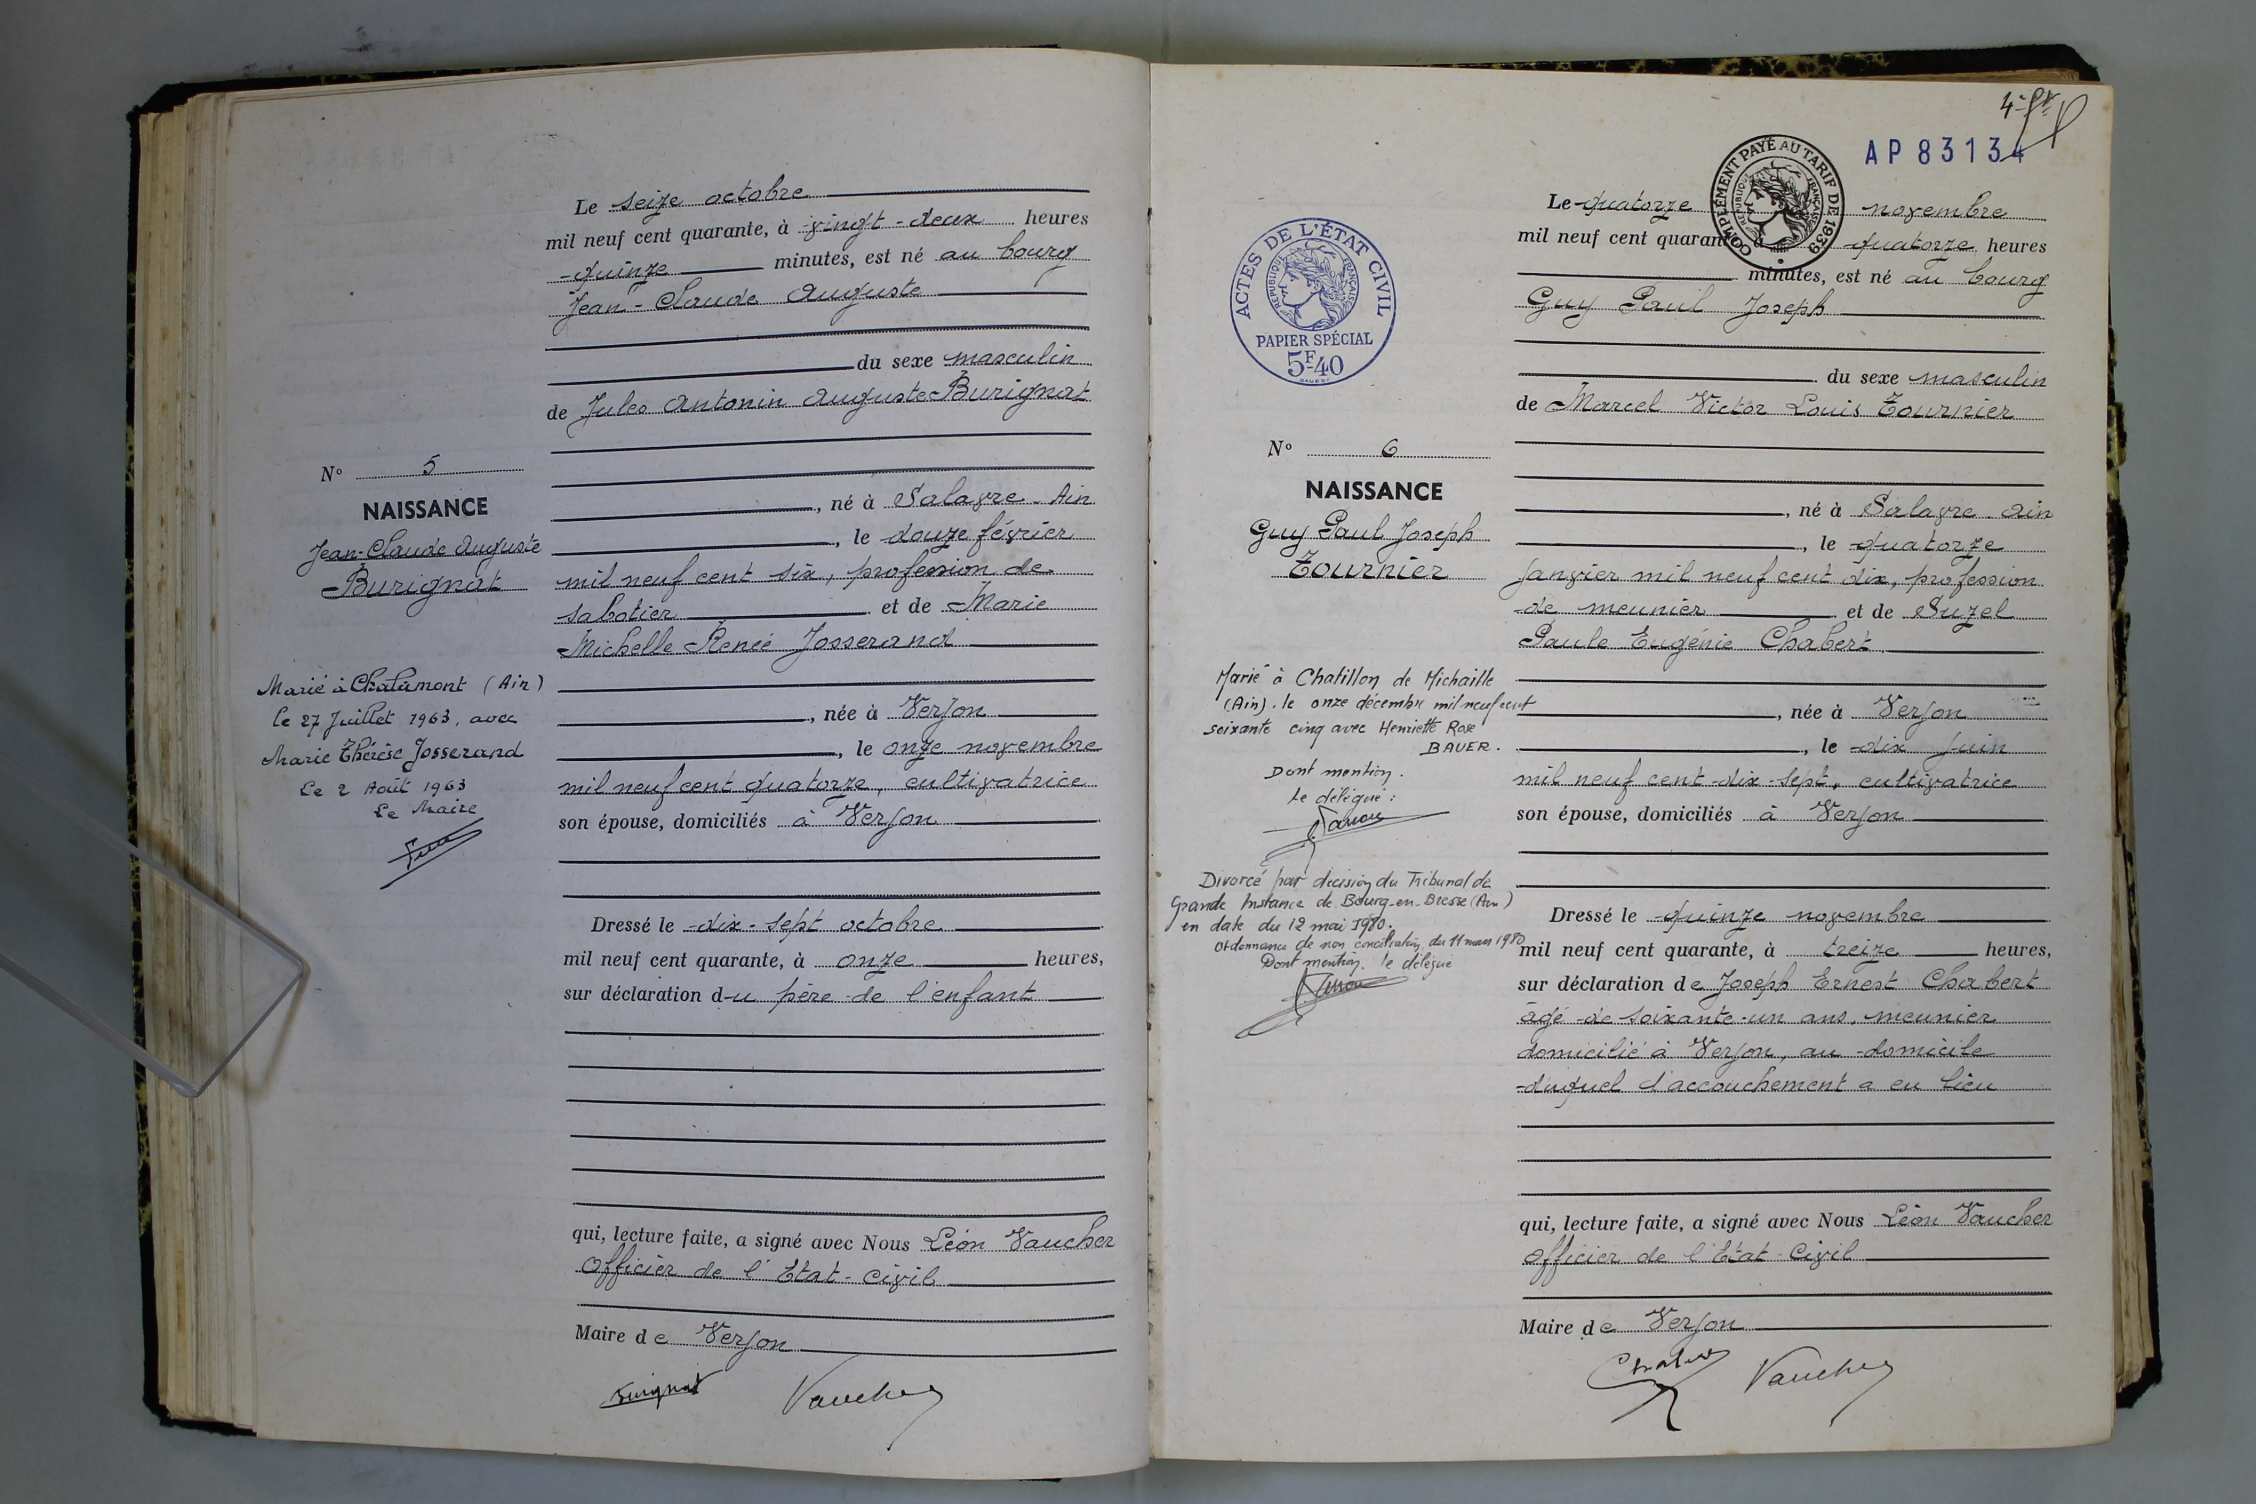 N° 5
NAISSANCE
Jean-Claude Auguste
Burignat
Marié à Chalamont (Ain)
le 27 Juillet 1963, avec
Marie Thérèse Josserand
Le 2 Août 1963
Le Maire
Le seize octobre
mil neuf cent quarante, à vingt-deux heures
quinze minutes, est né au bourg
Jean-Claude Auguste
du sexe masculin
de Jules Antonin Auguste Burignat
, né à Salavre - Ain
, le douze février
mil neuf cent six, profession de
sabotier et de Marie
Michelle Renée Josserand
, née à Verjon
, le onze novembre
mil neuf cent quatorze, cultivatrice
son épouse, domiciliés à Verjon
Dressé le dix-sept octobre
mil neuf cent quarante, à onze heures,
sur déclaration du père de l'enfant
qui, lecture faite, a signé avec Nous Léon Vaucher
Officier de l'Etat-Civil
Maire de Verjon
Burignat Vaucher
AP 83134
COMPLÉMENT PAYÉ AU TARIF DE 1939
RÉPUBLIQUE FRANÇAISE
ACTES DE L'ÉTAT CIVIL
RÉPUBLIQUE FRANÇAISE
PAPIER SPÉCIAL
5F40
N° 6
NAISSANCE
Guy Paul Joseph
Tournier
Marié à Chatillon de Michaille
(Ain), le onze décembre mil neuf cent
soixante cinq avec Henriette Rose
BAUER.
Dont mention.
Le délégué :
Divorcé par décision du Tribunal de
Grande Instance de Bourg-en-Bresse (Ain)
en date du 12 mai 1980.
Ordonnance de non conciliation du 11 mars 1980
Dont mention. le délégué
Le quatorze novembre
mil neuf cent quarante, à quatorze heures
minutes, est né au bourg
Guy Paul Joseph
du sexe masculin
de Marcel Victor Louis Tournier
, né à Salavre - Ain
, le quatorze
janvier mil neuf cent dix, profession
de meunier et de Suzel
Paule Eugénie Chabert
, née à Verjon
, le dix juin
mil neuf cent dix-sept, cultivatrice
son épouse, domiciliés à Verjon
Dressé le quinze novembre
mil neuf cent quarante, à treize heures,
sur déclaration de Joseph Ernest Chabert
âgé de soixante-un ans, meunier
domicilié à Verjon, au domicile
duquel l'accouchement a eu lieu
qui, lecture faite, a signé avec Nous Léon Vaucher
Officier de l'Etat-Civil
Maire de Verjon
Chabert Vaucher